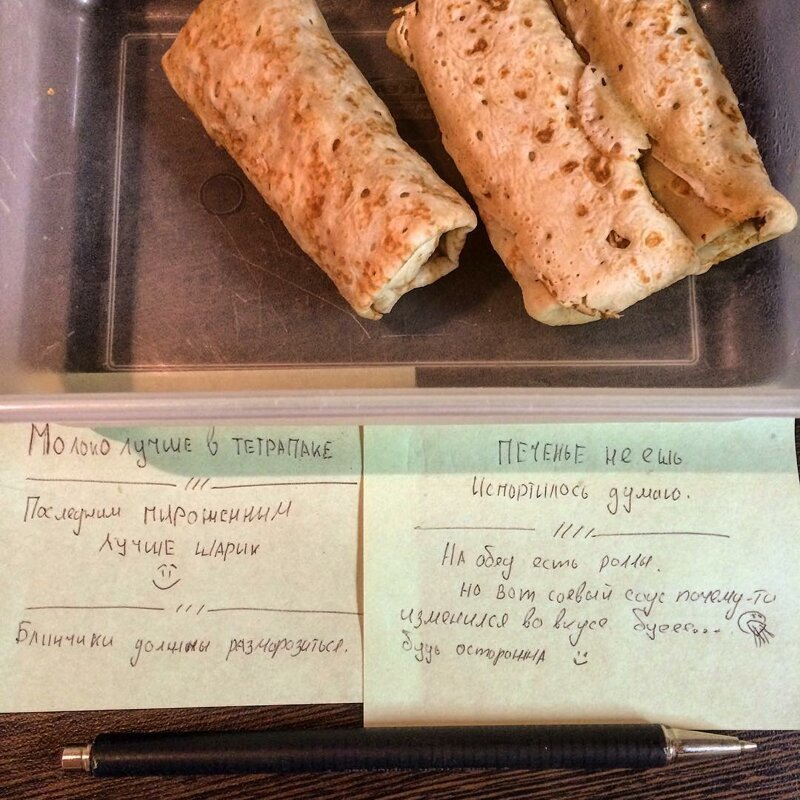 Молоко лучше в ТЕТРАПАКЕ
Последним пирожинным
лучше шарик
Блинчики должны разморозиться.
ПЕЧЕНЬЕ не ешь
Испортилось думаю.
На обед есть роллы.
но вот соевый соус почему-то
изменился во вкусе буеее...
будь осторожна